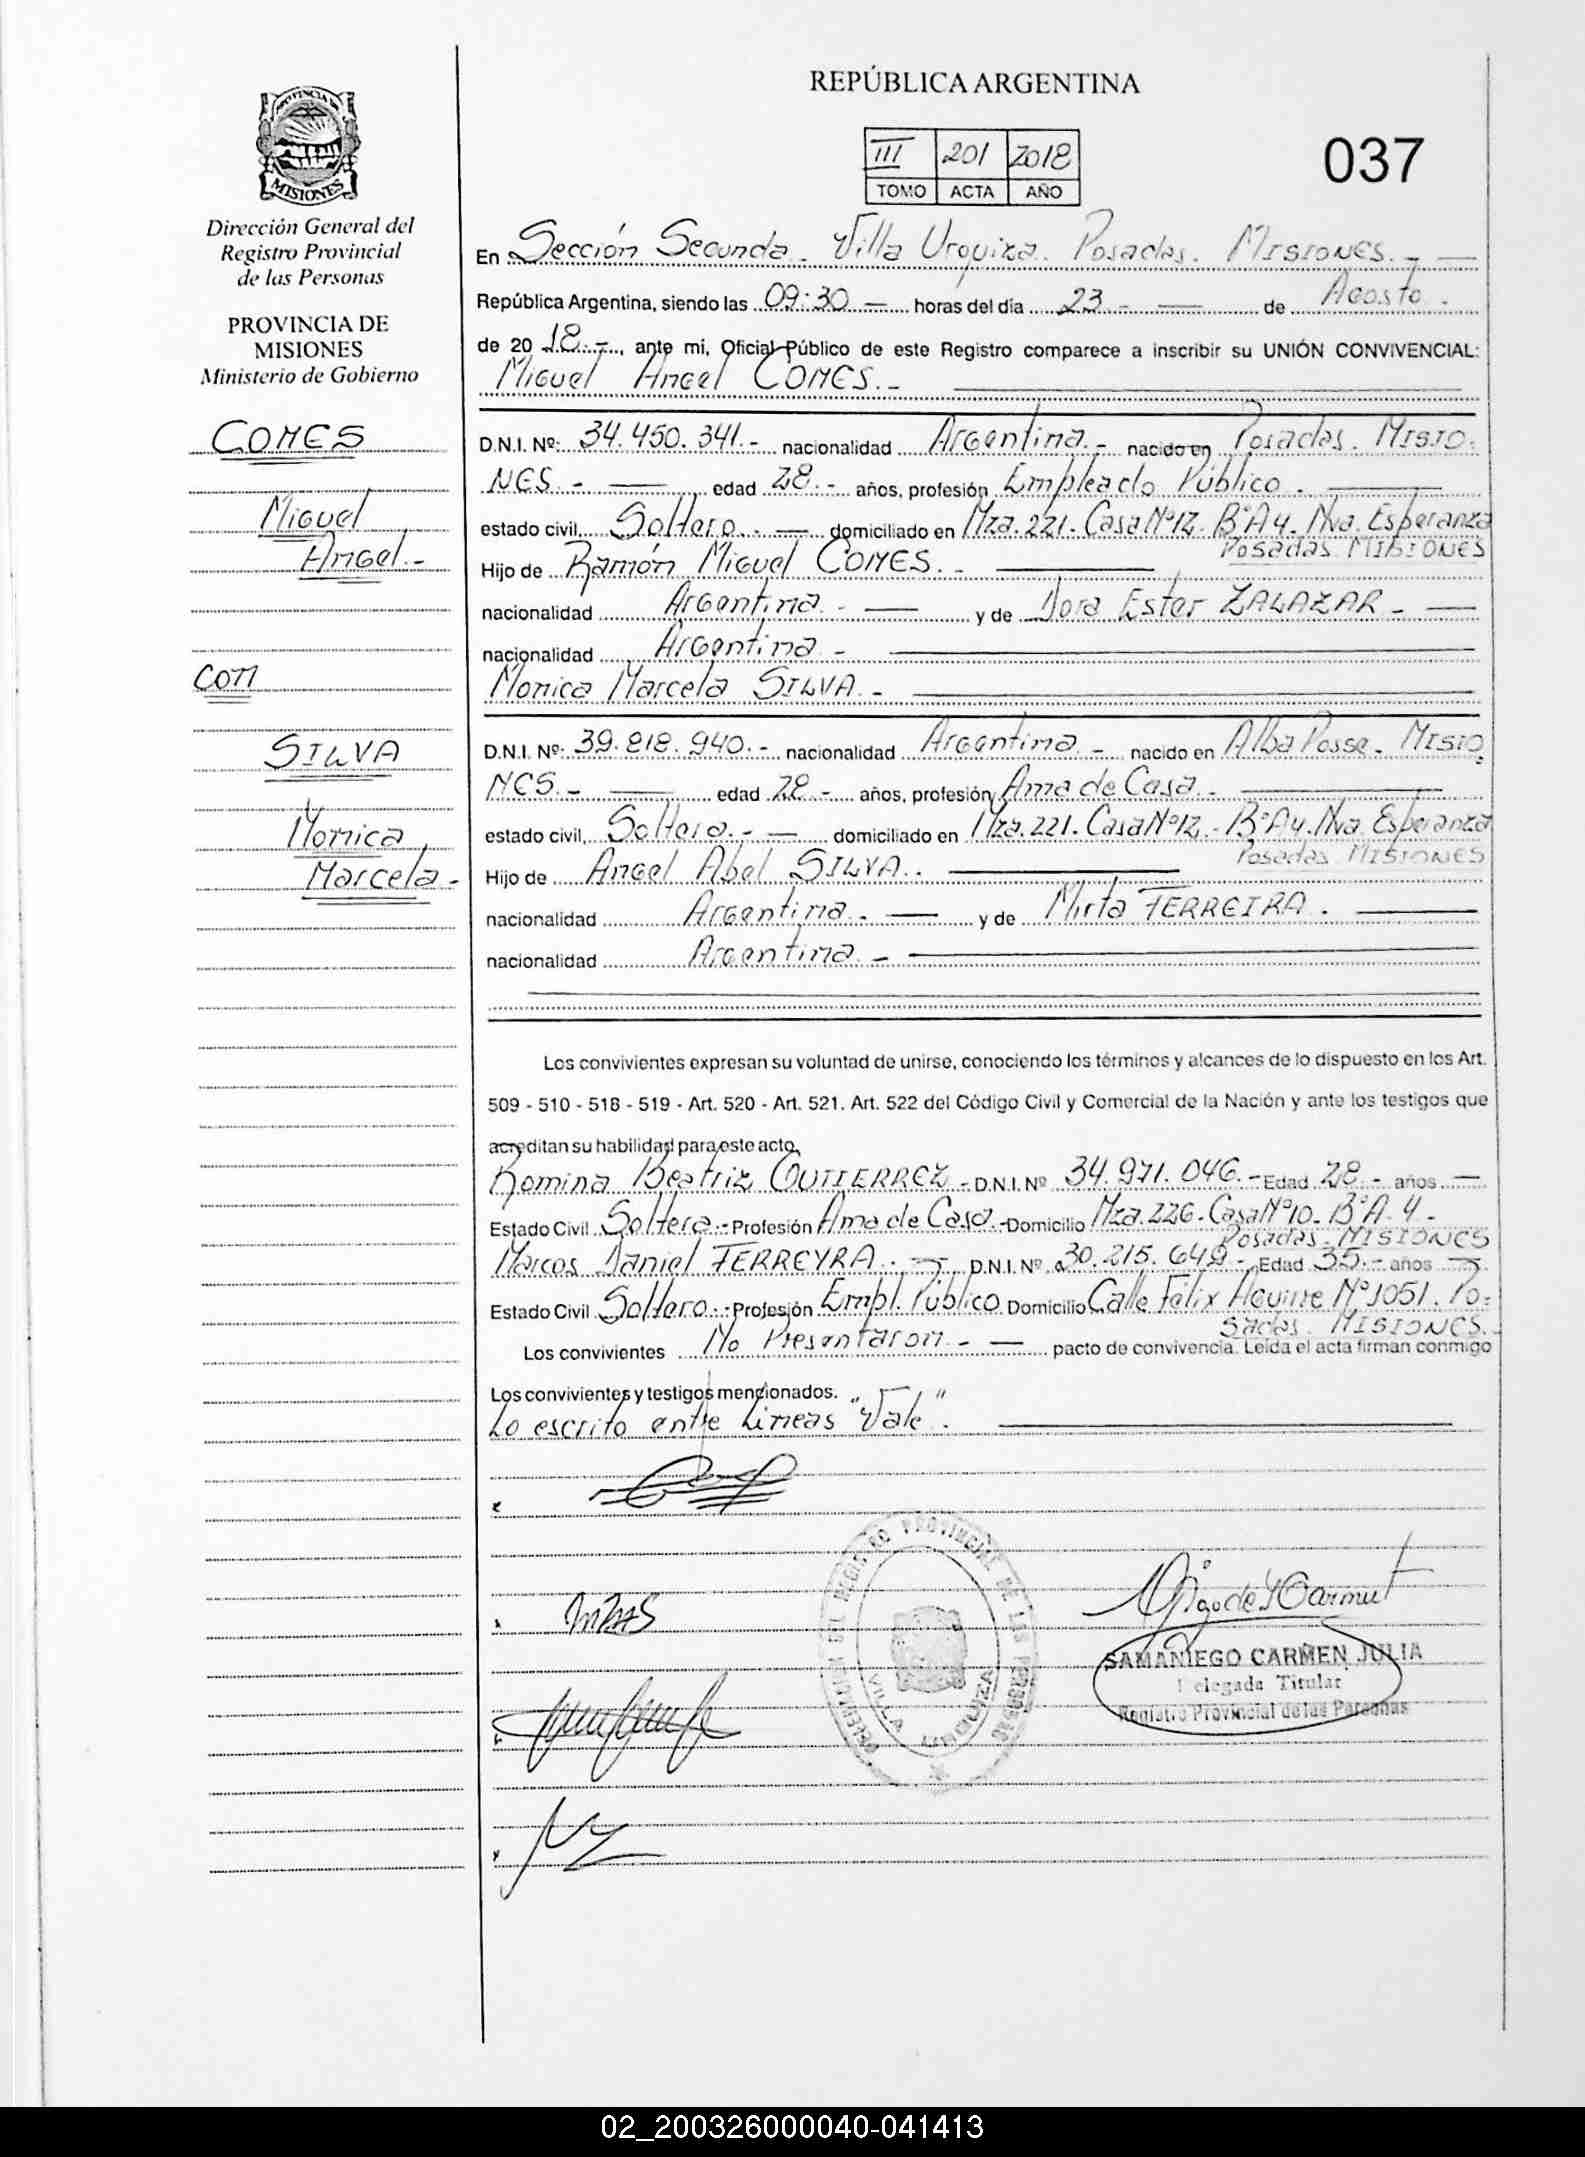 REPÚBLICA ARGENTINA
III 201 2018
TOMO ACTA AÑO
037
PROVINCIA DE
MISIONES
Dirección General del
Registro Provincial
de las Personas
PROVINCIA DE
MISIONES
Ministerio de Gobierno
GOMES
Miguel
Angel.-
con
SILVA
Monica
Marcela-
En Sección Segunda. Villa Urquiza. Posadas. MISIONES.-
República Argentina, siendo las 09:30 horas del día 23.- de Agosto.
de 20 18.-, ante mi, Oficial Público de este Registro comparece a inscribir su UNIÓN CONVIVENCIAL:
Miguel Angel GOMES.-
D.N.I. Nº: 34.450.341.- nacionalidad Argentina.- nacido en Posadas. MISIO-
NES.- edad 28.- años, profesión Empleado Público.
estado civil, Soltero. domiciliado en Mza.221. Casa Nº12. BºA4. Nva. Esperanza
Posadas. MISIONES
Hijo de Ramón Miguel GOMES.-
nacionalidad Argentina.- y de Dora Ester ZALAZAR.-
nacionalidad Argentina.-
Monica Marcela SILVA.-
D.N.I. Nº: 39.818.940.- nacionalidad Argentina.- nacido en Alba Posse. MISIO
NES.- edad 28.- años, profesión Ama de Casa.-
estado civil, Soltera.- domiciliado en Mza.221. Casa Nº12.- BºA4. Nva Esperanza
Posadas MISIONES
Hijo de Angel Abel SILVA.
nacionalidad Argentina. y de Mirta FERREIRA.
nacionalidad Argentina.-
Los convivientes expresan su voluntad de unirse, conociendo los términos y alcances de lo dispuesto en los Art.
509 - 510 - 518 - 519 - Art. 520 - Art. 521. Art. 522 del Código Civil y Comercial de la Nación y ante los testigos que
acreditan su habilidad para este acto,
Romina Beatriz GUTIERREZ - D.N.I. Nº 34.971.046.- Edad 28.- años
Estado Civil Soltera.- Profesión Ama de Casa.- Domicilio Mza.226. Casa Nº10- BºA-4-
Posadas- MISIONES
Marcos Daniel FERREYRA. D.N.I. Nº 30.215.649- Edad 35.- años
Estado Civil Soltero. Profesión Empl. Público Domicilio Calle Felix Aguirre Nº1051. Po-
sadas. MISIONES.
Los convivientes No Presentaron.- pacto de convivencia. Leída el acta firman conmigo
Los convivientes y testigos mencionados.
Lo escrito entre Lineas "Vale".
SAMANIEGO CARMEN JULIA
Delegada Titular
Registro Provincial de las Personas
DELEGACION DEL REGISTRO PROVINCIAL DE LAS PERSONAS
VILLA URQUIZA
02_200326000040-041413